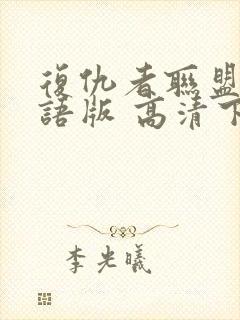 復仇者聯盟
語版 高清下
李光曦